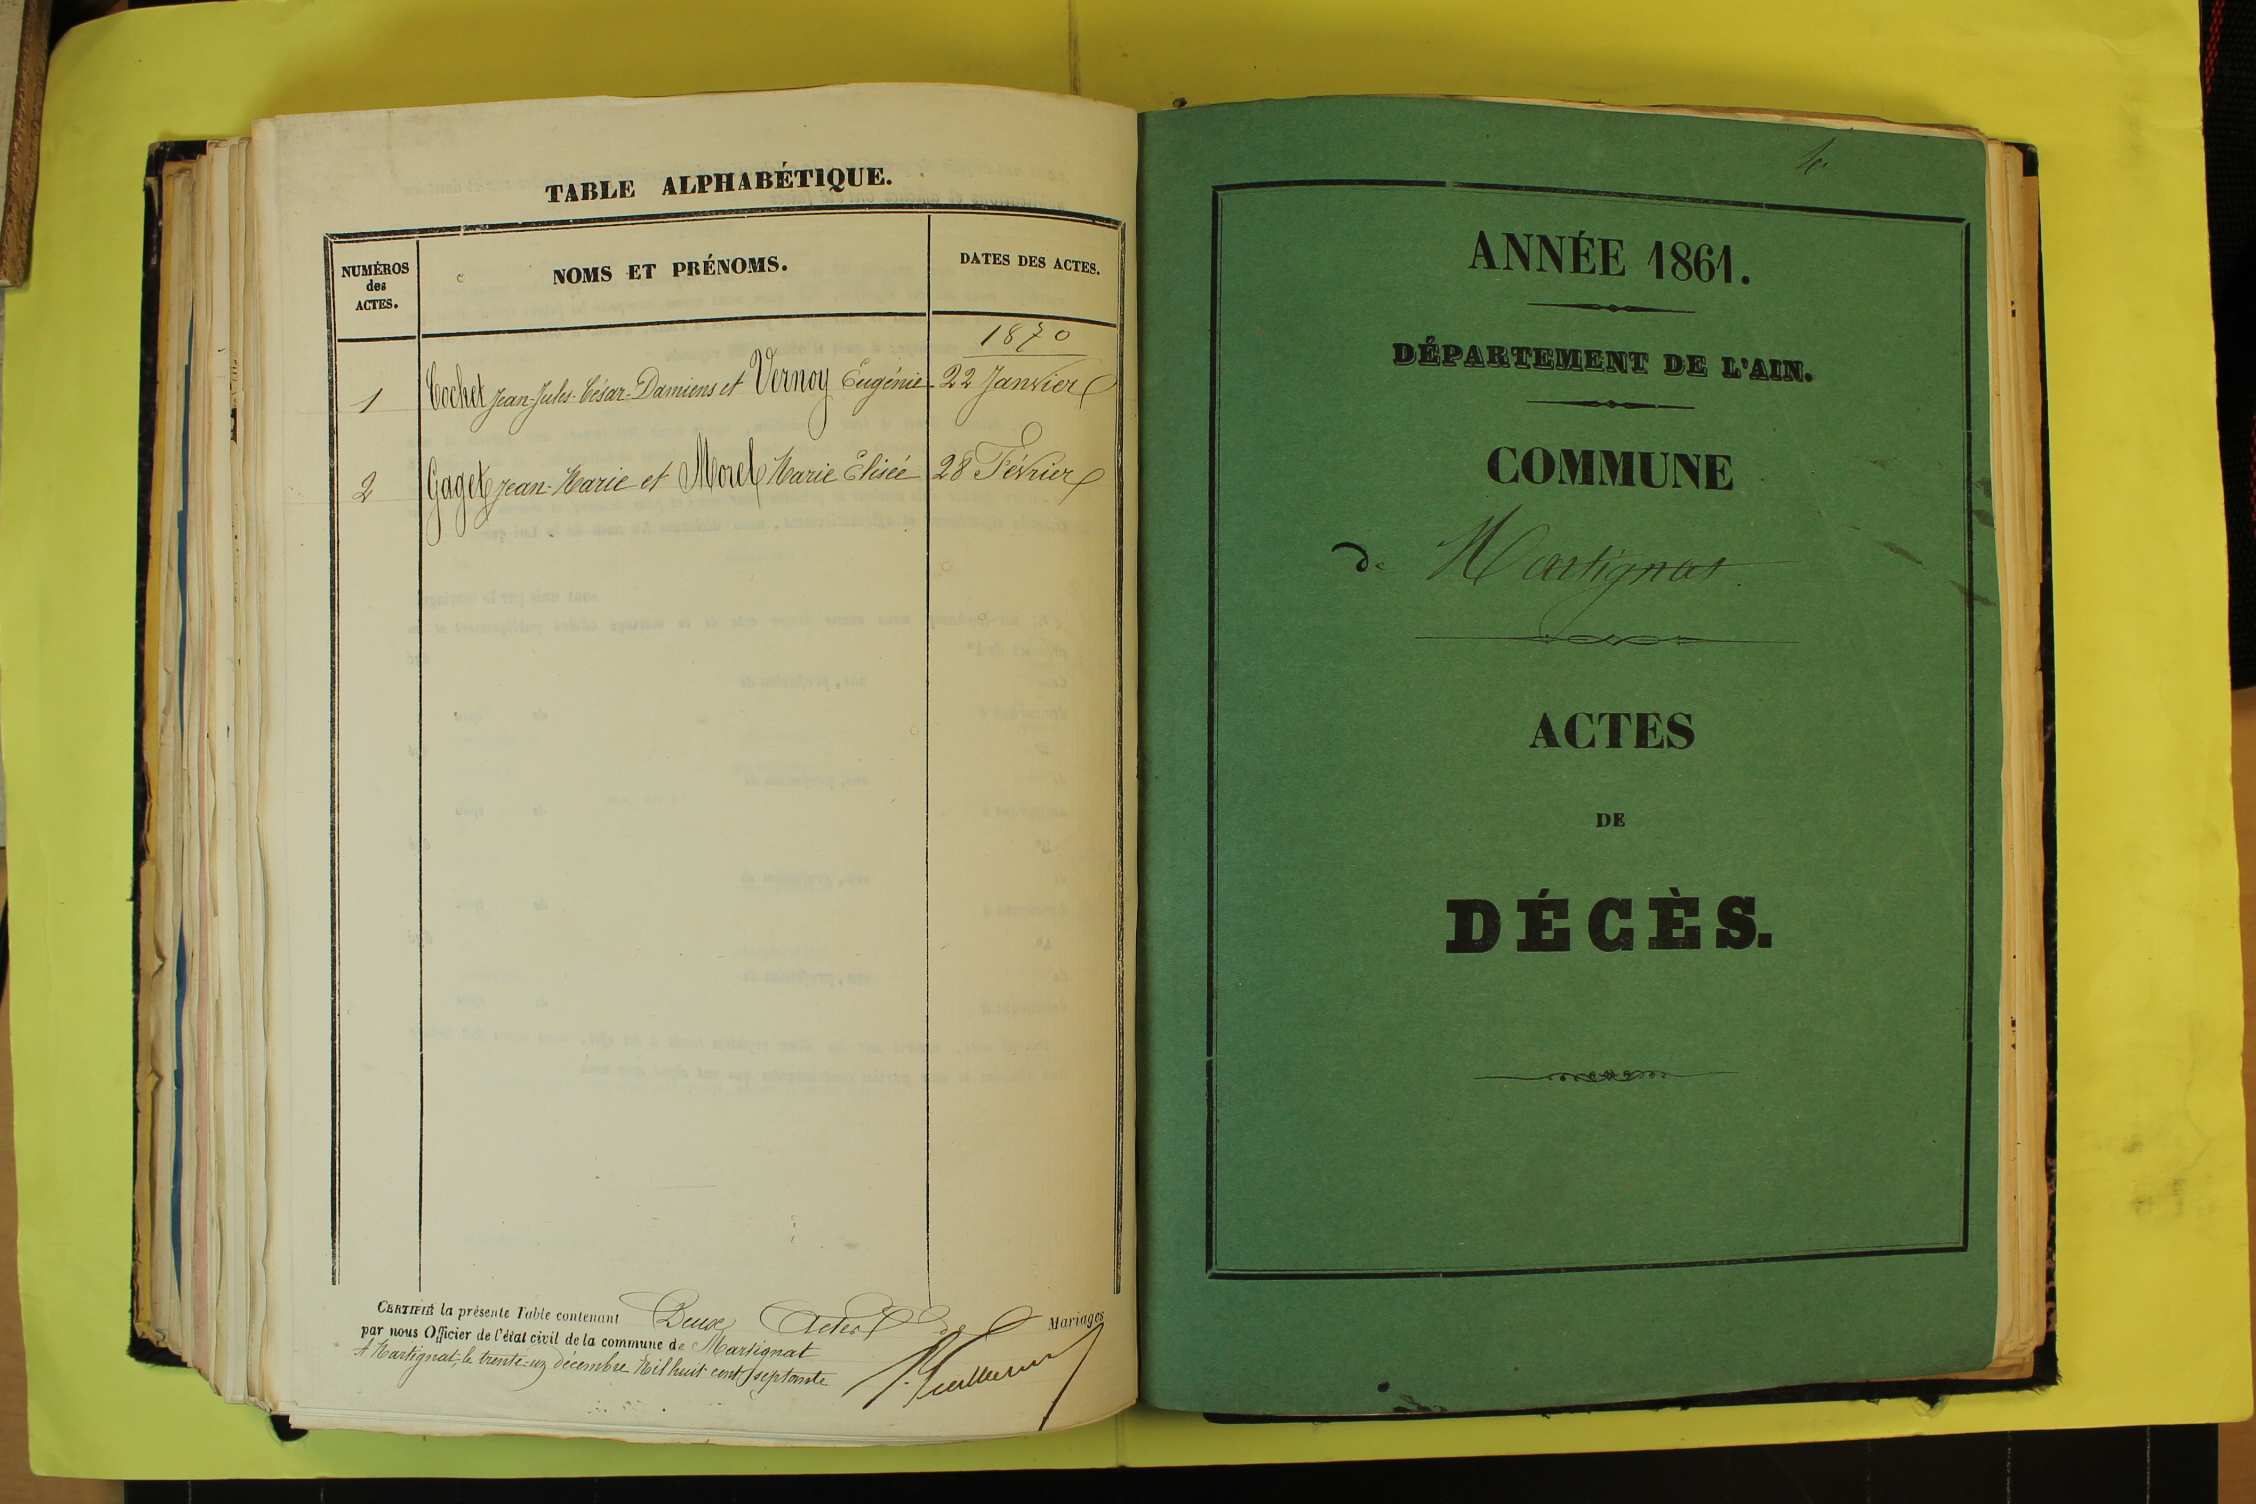 TABLE ALPHABÉTIQUE.
NUMÉROS
des
ACTES.
NOMS ET PRÉNOMS.
DATES DES ACTES.
1870
1 Cochet Jean-Jules-César-Damiens et Vernoy Eugénie 22 Janvier
2 Gaget Jean-Marie et Morel Marie Elisée 28 Février
CERTIFIÉ la présente Table contenant Deux Actes de Mariages
par nous Officier de l'état civil de la commune de Martignat
A Martignat, le trente-un décembre Mil huit cent septante
ANNÉE 1861.
DÉPARTEMENT DE L'AIN.
COMMUNE
de Martignat
ACTES
DE
DÉCÈS.